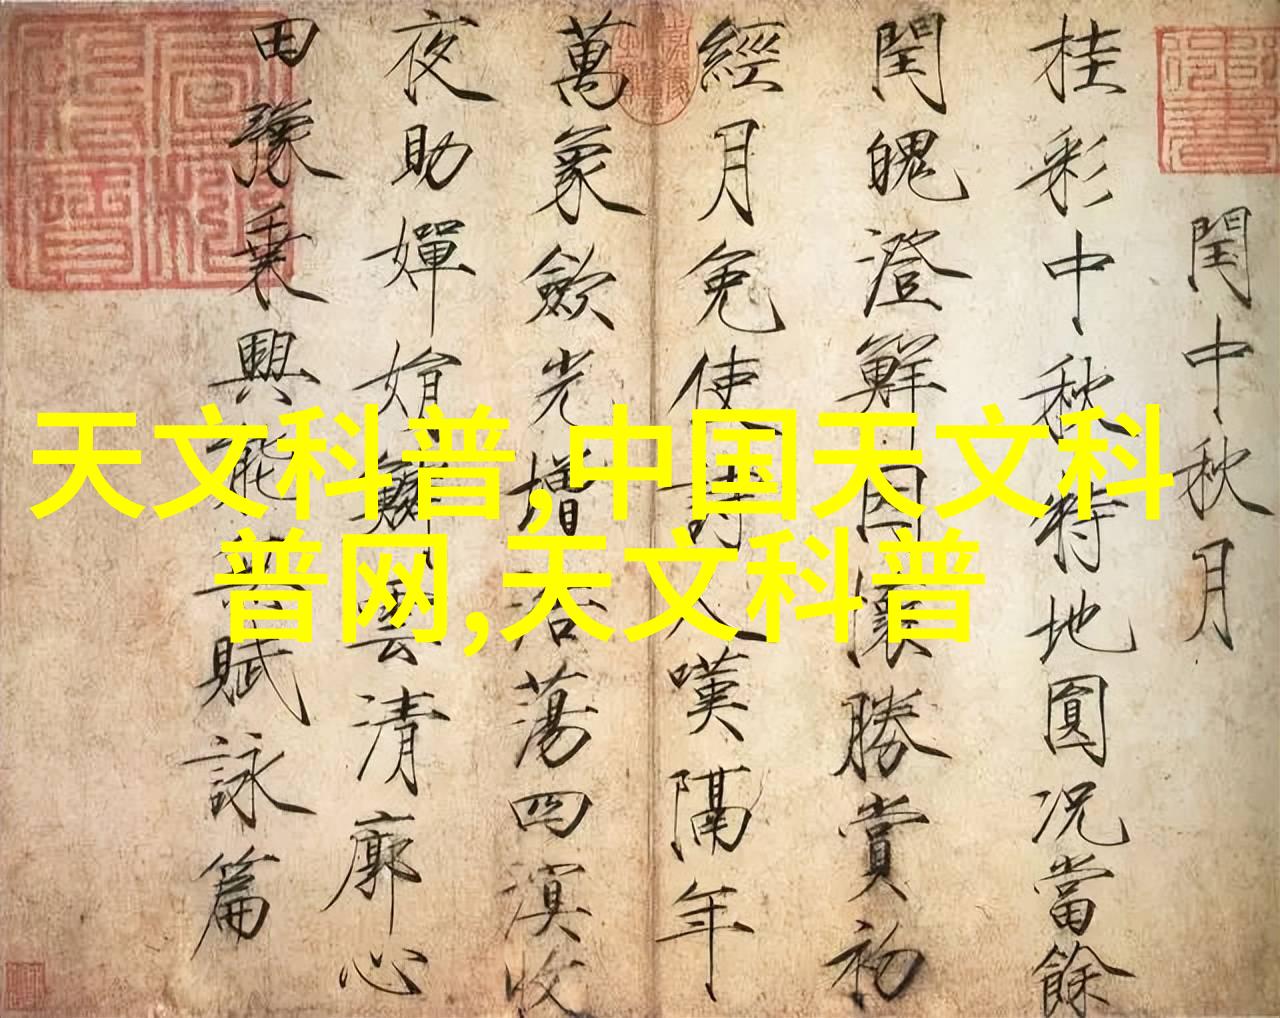 閏中秋月
桂彩中秋特地圓況當餘
閏魄澄鮮因懷勝賞初
經月免使詩人嘆隔年
萬象歛光增浩蕩四溟收
夜助嬋娟鱗雲清廓心
田豫乗興能無賦詠篇
天文科普,中国天文科
普网,天文科普